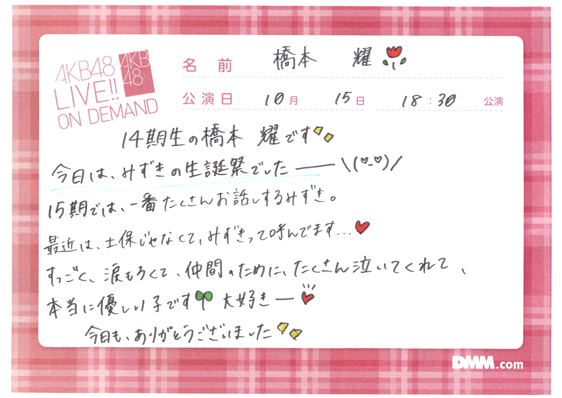 AKB48
LIVE!!
ON DEMAND
AKB
48
名前 橋本 耀
公演日 10月 15日 18:30 公演
14期生の橋本 耀です
今日は、みずきの生誕祭でした ── \(^-^)/
15期では、一番たくさんお話しするみずき。
最近は、土保じゃなくて、みずきって呼んでます…
すっごく、涙もろくて、仲間のために、たくさん泣いてくれて、
本当に優しい子です 大好きー
今日も、ありがとうございました
DMM.com